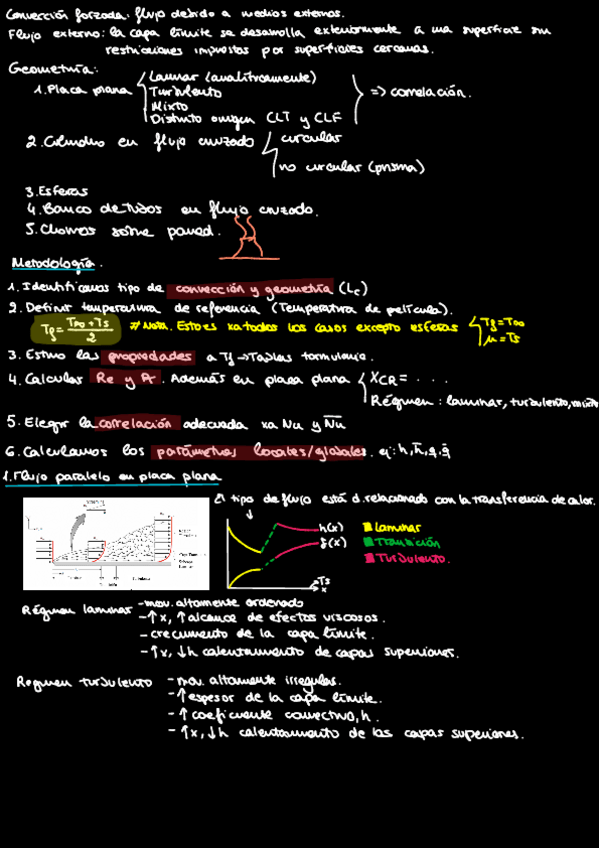 Convección forzada: flujo debido a medios externos.
Flujo externo: la capa límite se desarrolla exteriormente a una superficie sin
restricciones impuestas por superficies cercanas.
Geometría:
1. Placa plana
Laminar (analíticamente)
Turbulento
Mixto
Distinto origen CLT y CLF
=> correlación.
2. Cilindro en flujo cruzado
circular
no circular (prisma)
3. Esferas
4. Banco de tubos en flujo cruzado.
5. Chorros sobre pared.
Metodología.
1. Identificamos tipo de convección y geometría (Lc)
2. Definir temperatura de referencia (Temperatura de película).
Tf = T∞ + Ts / 2
* Nota. Esto es xa todos los casos excepto esferas
Tf = T∞
μ = Ts
3. Estimo las propiedades a Tf → Tablas formulario.
4. Calcular Re y Pr. Además en placa plana
XCR = ...
Régimen: laminar, turbulento, mixto
5. Elegir la correlación adecuada xa Nu y N̅u̅
6. Calculamos los parámetros locales/globales. ej: h, h̅, q, q̅
1. Flujo paralelo en placa plana
El tipo de flujo está d. relacionado con la transferencia de calor.
h(x)
δ(x)
Ts
x
Laminar
Transición
Turbulento.
Régimen laminar
- mov. altamente ordenado
- ↑x, ↑ alcance de efectos viscosos.
- crecimiento de la capa límite.
- ↑x, ↓h calentamiento de capas superiores.
Régimen turbulento
- mov. altamente irregular.
- ↑ espesor de la capa límite.
- ↑ coeficiente convectivo, h.
- ↑x, ↓h calentamiento de las capas superiores.